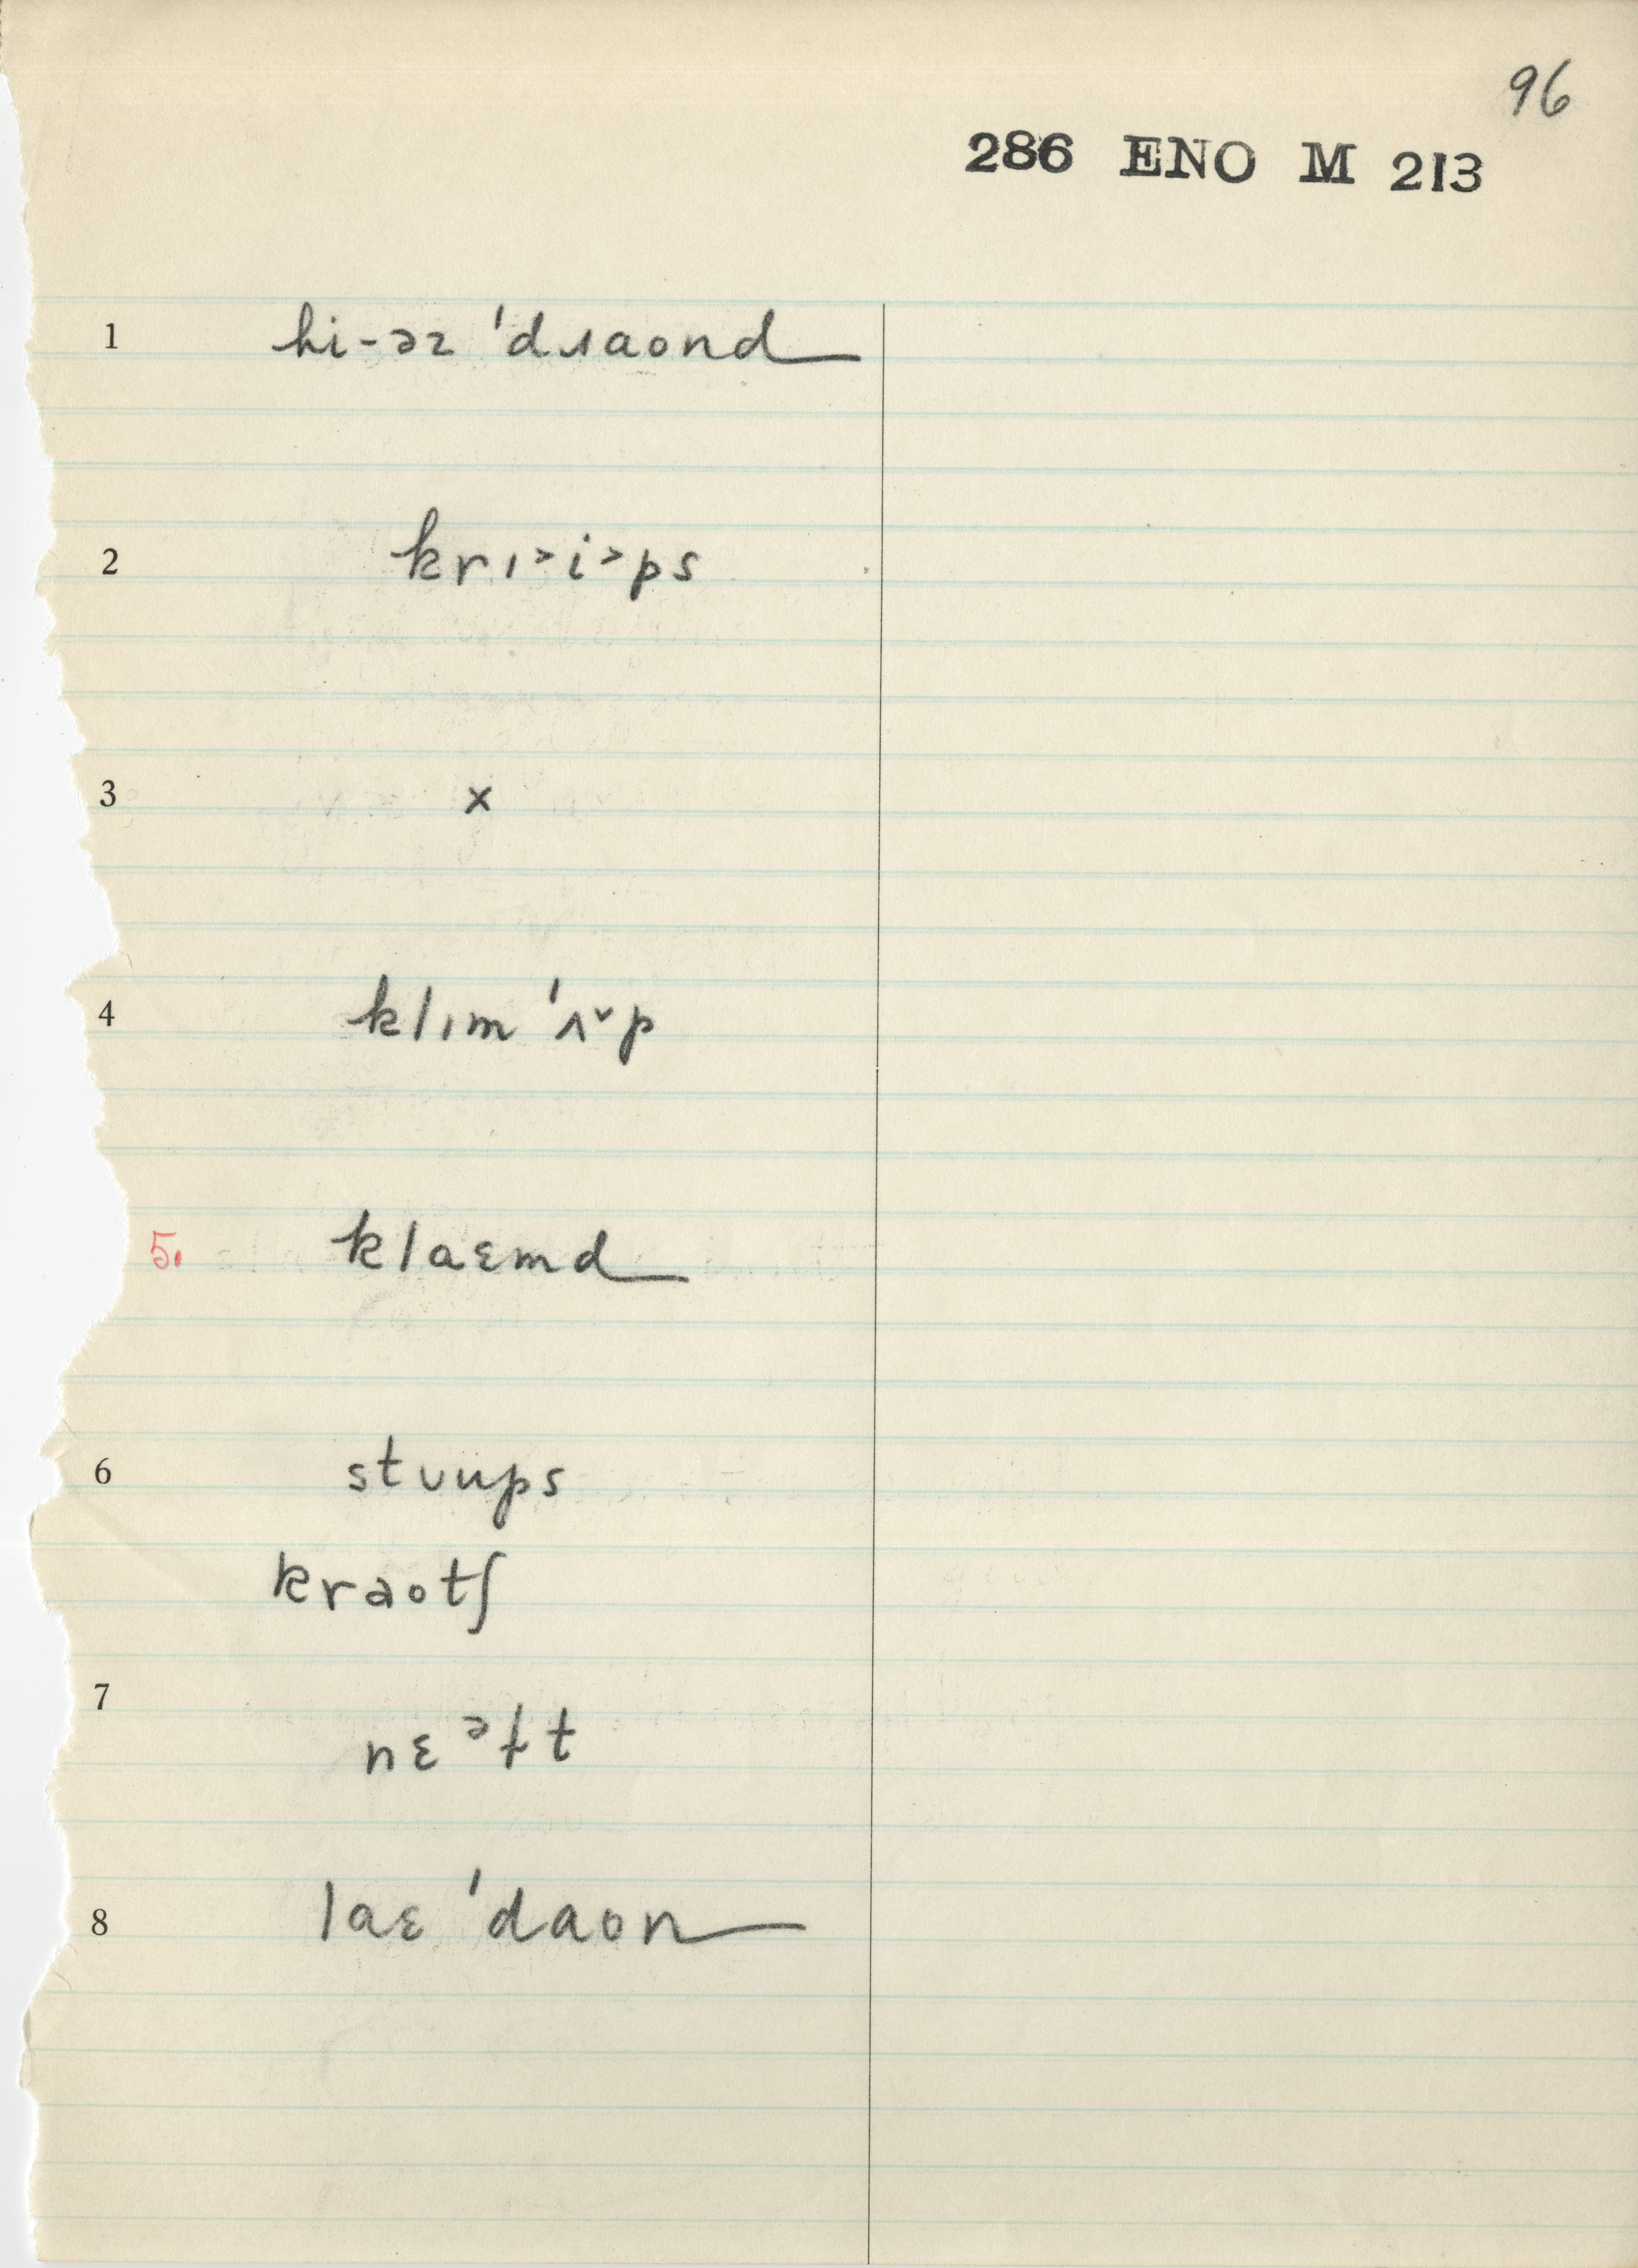 96
286 ENO M 213
1 hi-əɪ 'dɹaond
2 krɪ˃i˃ps
3 x
4 klɪm 'ʌ˅p
5. klaɛmd
6 stʊups
kraotʃ
7 nɛᵊɫt
8 laɛ 'daon